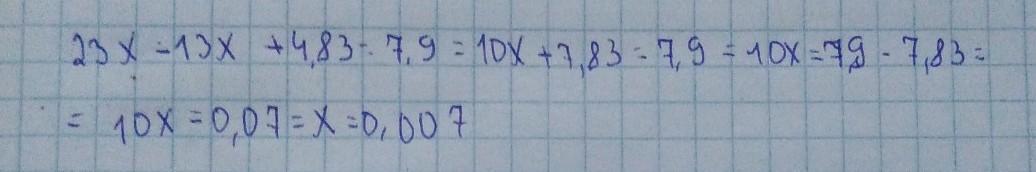 23x - 13x + 4,83 - 7,9 = 10x + 7,83 = 7,9 = 10x = 7,9 - 7,83 =
= 10x = 0,07 = x = 0,007